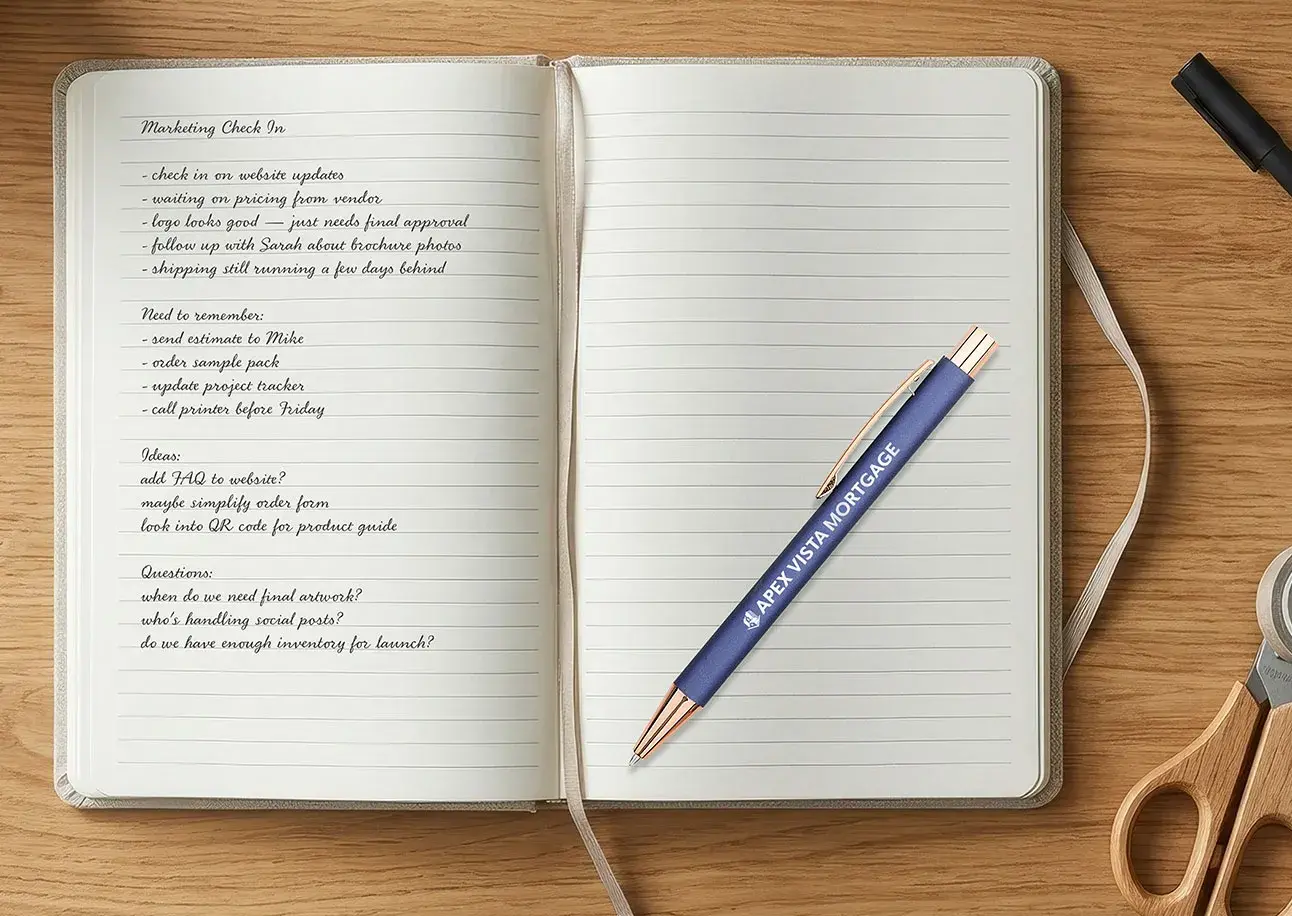 Marketing Check In
- check in on website updates
- waiting on pricing from vendor
- logo looks good — just needs final approval
- follow up with Sarah about brochure photos
- shipping still running a few days behind
Need to remember:
- send estimate to Mike
- order sample pack
- update project tracker
- call printer before Friday
Ideas:
add FAQ to website?
maybe simplify order form
look into QR code for product guide
Questions:
when do we need final artwork?
who's handling social posts?
do we have enough inventory for launch?
APEX VISTA MORTGAGE